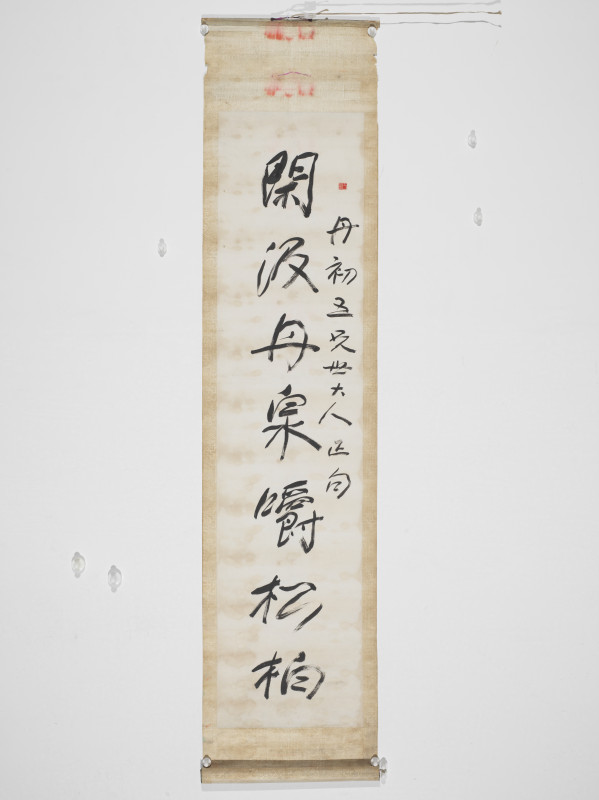 丹初五兄世大人正句
閑汲丹泉嚼松柏